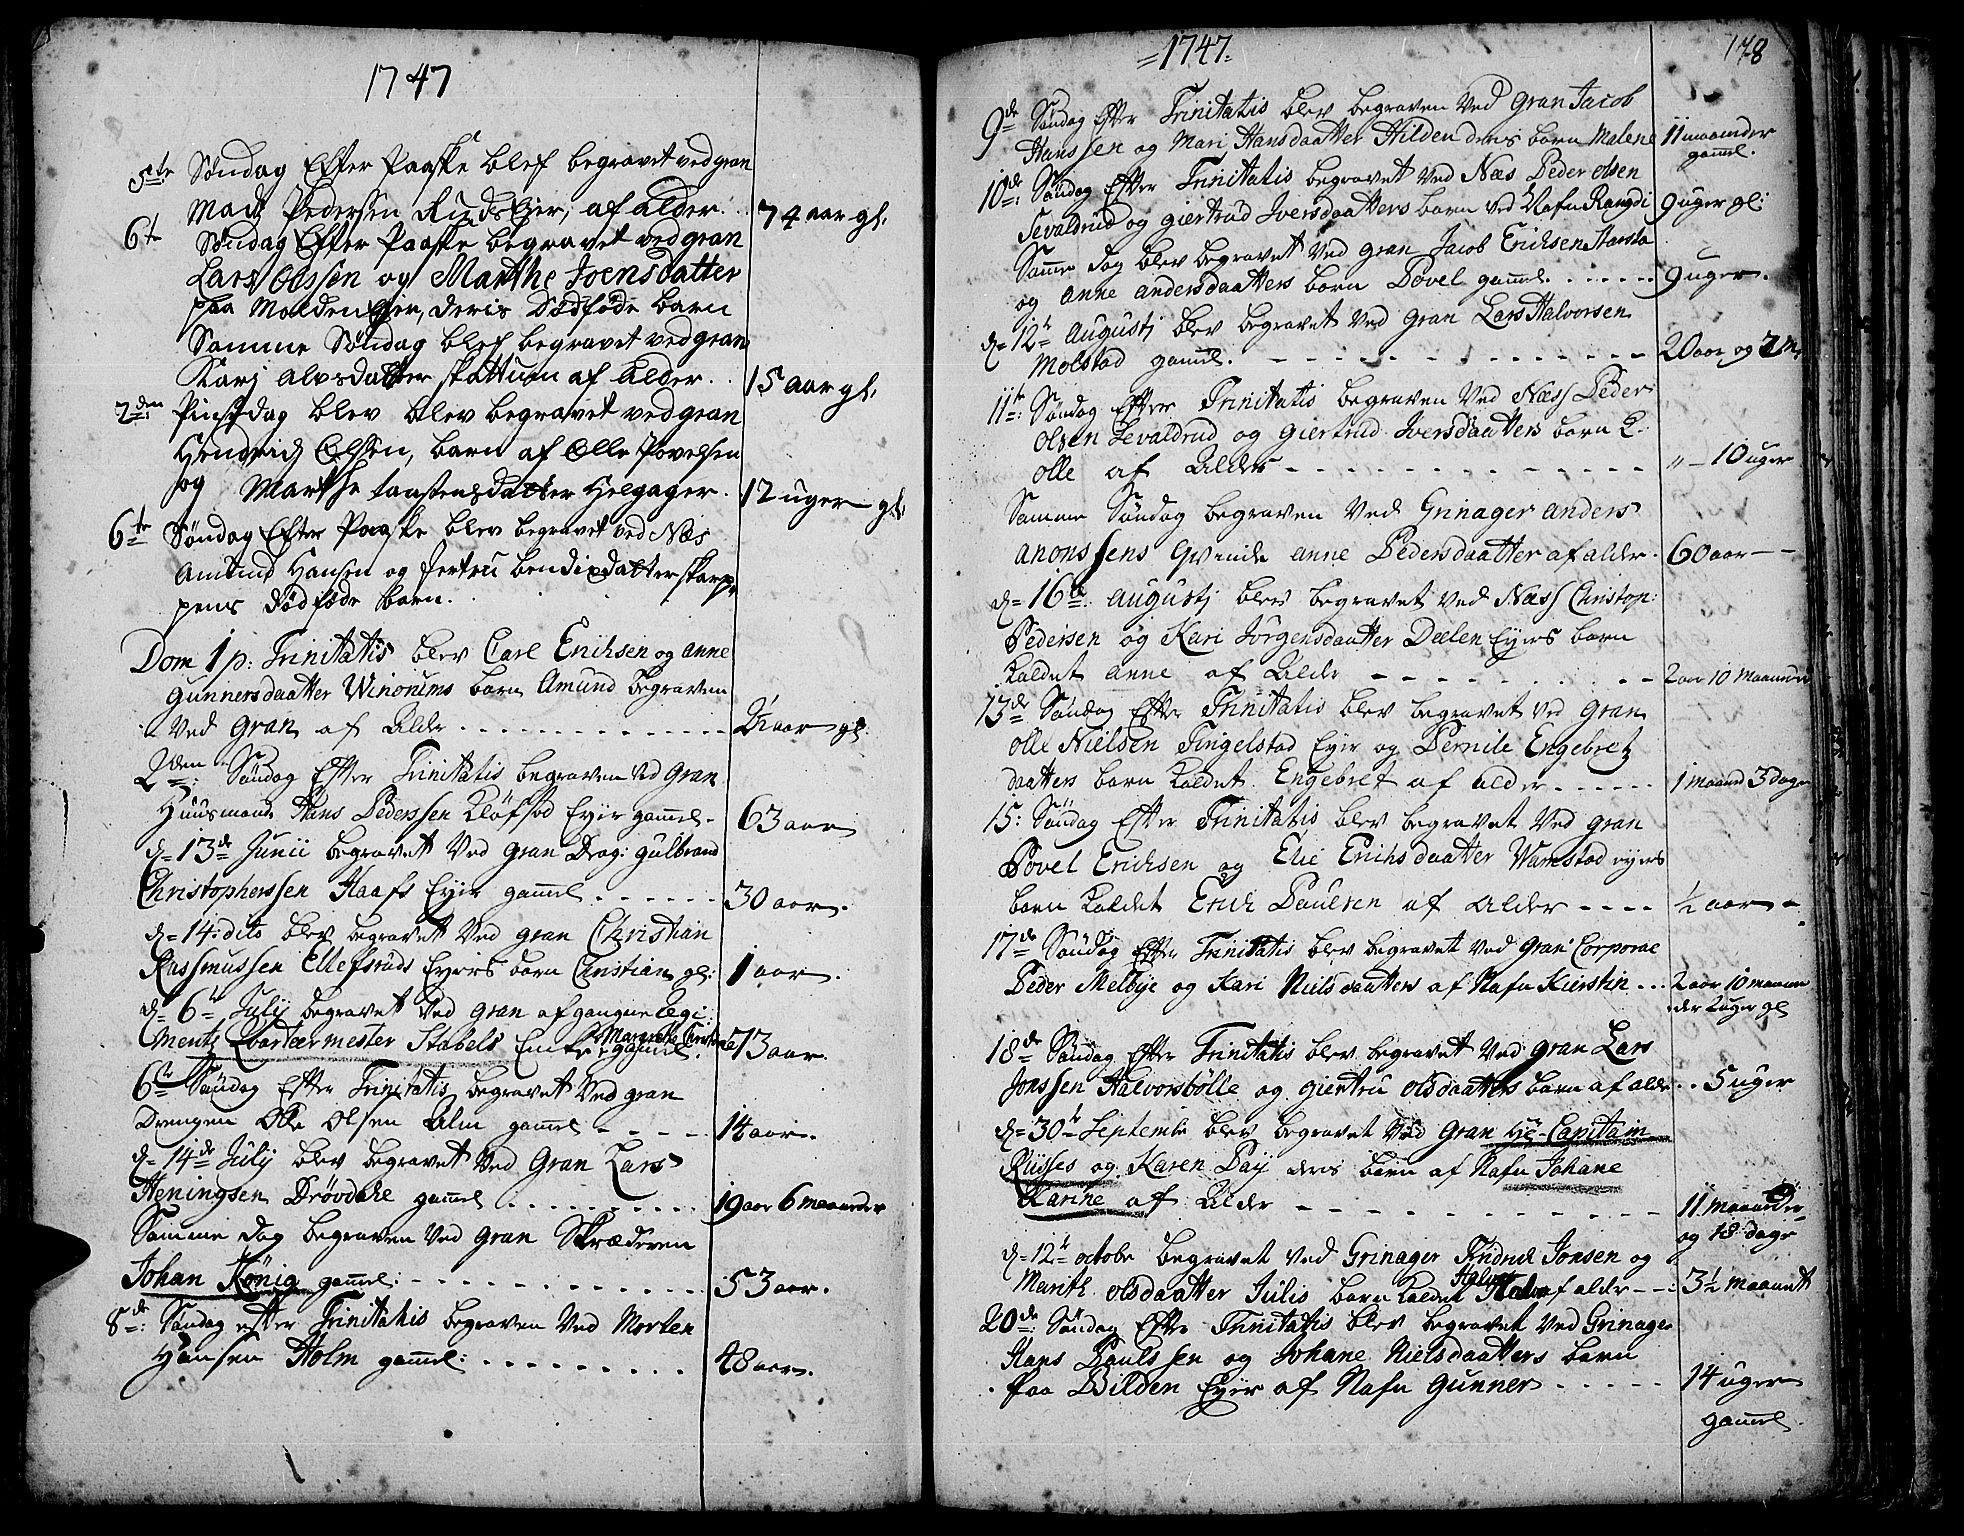 1747
5te Søndag Efter Paaske blef begravet ved gran
Mads Pedersen RudsEjer, af alder. 74 aar gl:
6te Søndag Efter Paaske begravet ved gran
Lars Olssen og Marthe Joensdatter
paa Molden Ejer, deris Dødføde barn
Samme Søndag blef begravet ved gran
Karj Alvsdatter skattum af alder. 15 aar gl:
2den Pinsdag blev blev begravet ved gran
Hendrich Olssen, barn af Olle Povelsen
og Marthe taastensdatter Helgager. 12 uger gl:
6te Søndag Efter Paaske blev begravet ved Næs
Amund Hansen og sertru bendixdatter skarp-
pens dødføde barn.
Dom 1 p: Trinitatis blev Carl Erichsen og anne
Gunnersdaatter Winorums barn Amund begraven
Ved Gran af Alder 2½ aar gl.
2den Søndag Efter Trinitatis begraven ved Gran
Huusmand Hans Pederssen Kløfsød Eyer gamel 63 aar
d= 13de Junii begravet Ved Gran Drag: gulbrand
Christopherssen Haafs Eyer gamel 30 aar.
d= 14 dito blev begravet Ved gran Christian
Rassmussen Ellefsruds Eyers barn Christian gl: 1 aar.
d= 6te Julij begravet Ved gran afgangne Regi
Mentz Qvarteermester Stabels Enke Margrethe Christine gamel. 73 aar.
6te Søndag Efter Trinitatis begravet Ved gran
Drengen Ole Olsen Alm gamel 14 aar.
d= 14de Julij blev begravet Ved Gran Lars
Heningsen Drøvdahl gamel 19 aar 6 maaneder
Samme dag begraven Ved gran Skræderen
Johan König gamel: 53 aar.
8de: Søndag efter Trinitatis begraven Ved Morten
Hansen Holm gamel: 48 aar.
=1747= 178
9de Søndag Efter Trinitatis blev begraven Ved Gran Jacob
Hanssen og Mari Hansdaatter Hilden deris barn Malene 11 maaneder
gamel.
10de: Søndag Efter Trinitatis begravet Ved Næs Peder olsen
Sevaldrud og giertrud Iversdaatters barn ved Nafn Rangdi 9 uger gl:
Samme dag blev begravet Ved gran Jacob Erichsen Harsta
og Anne andersdaatters barn Povel gamel 9 uger.
d= 12te Augustj blev begravet Ved Gran Lars Halvorsen
Molstad gamel. 20 aar og 2 m.
11te: Søndag Efter Trinitatis begraven Ved Næss Peder
Olsen Sevaldrud og Giertrud Iversdaatters barn
olle af Alder 10 uger
Samme Søndag begraven Ved Grinager anders
anonssens Qvinde anne Pedersdaatter af alder. 60 aar
d= 16te augustj blev begravet ved Næss Christop:
Pedersen og Kari Jørgensdaatter Dælen Eyers barn
kaldet Anne af Alder 2 aar 10 maaneder
13de Søndag Efter Trinitatis blev begravet ved gran
olle Nielsen Tingelstad Eyer og Pernile Engebretz
daatters barn kaldet Engebret af alder 1 maaned 3 dage
15: Søndag Efter Trinitatis blev begravet Ved gran
Povel Erichsen og Elie Erichsdaatter Wamstad eyers
barn kaldet Erich Paulsen af Alder ½ aar
17de Søndag Efter Trinitatis blev begravet ved Gran Corporal
Peder Melbye og Kari Nielsdaatters af Nafn Kierstin 2 aar 10 maane
der 2 uger gl
18de Søndag Efter Trinitatis blev begravet Ved Gran Lars
Jonssen Halvorsbølle og giertru olsdaatters barn af alder 5 uger
d= 30te Septembr blev begravet Ved Gran Hr Capitain
Riises og Karen Pay deris barn af Nafn Johane
Karine af Alder 11 maaneder
og 18 dage
d= 12te octobr begravet ved Grinager Fridrich Jonsen og
Marith olsdaatter Julis barn kaldet Halvor af alder 3½ maanet
20de: Søndag Efter Trinitatis blev begravet Ved Grinager
Hans Paulssen og Johane Nielsdaatters barn
paa Bilden Eyer af Nafn Gunner 14 uger
gamel.